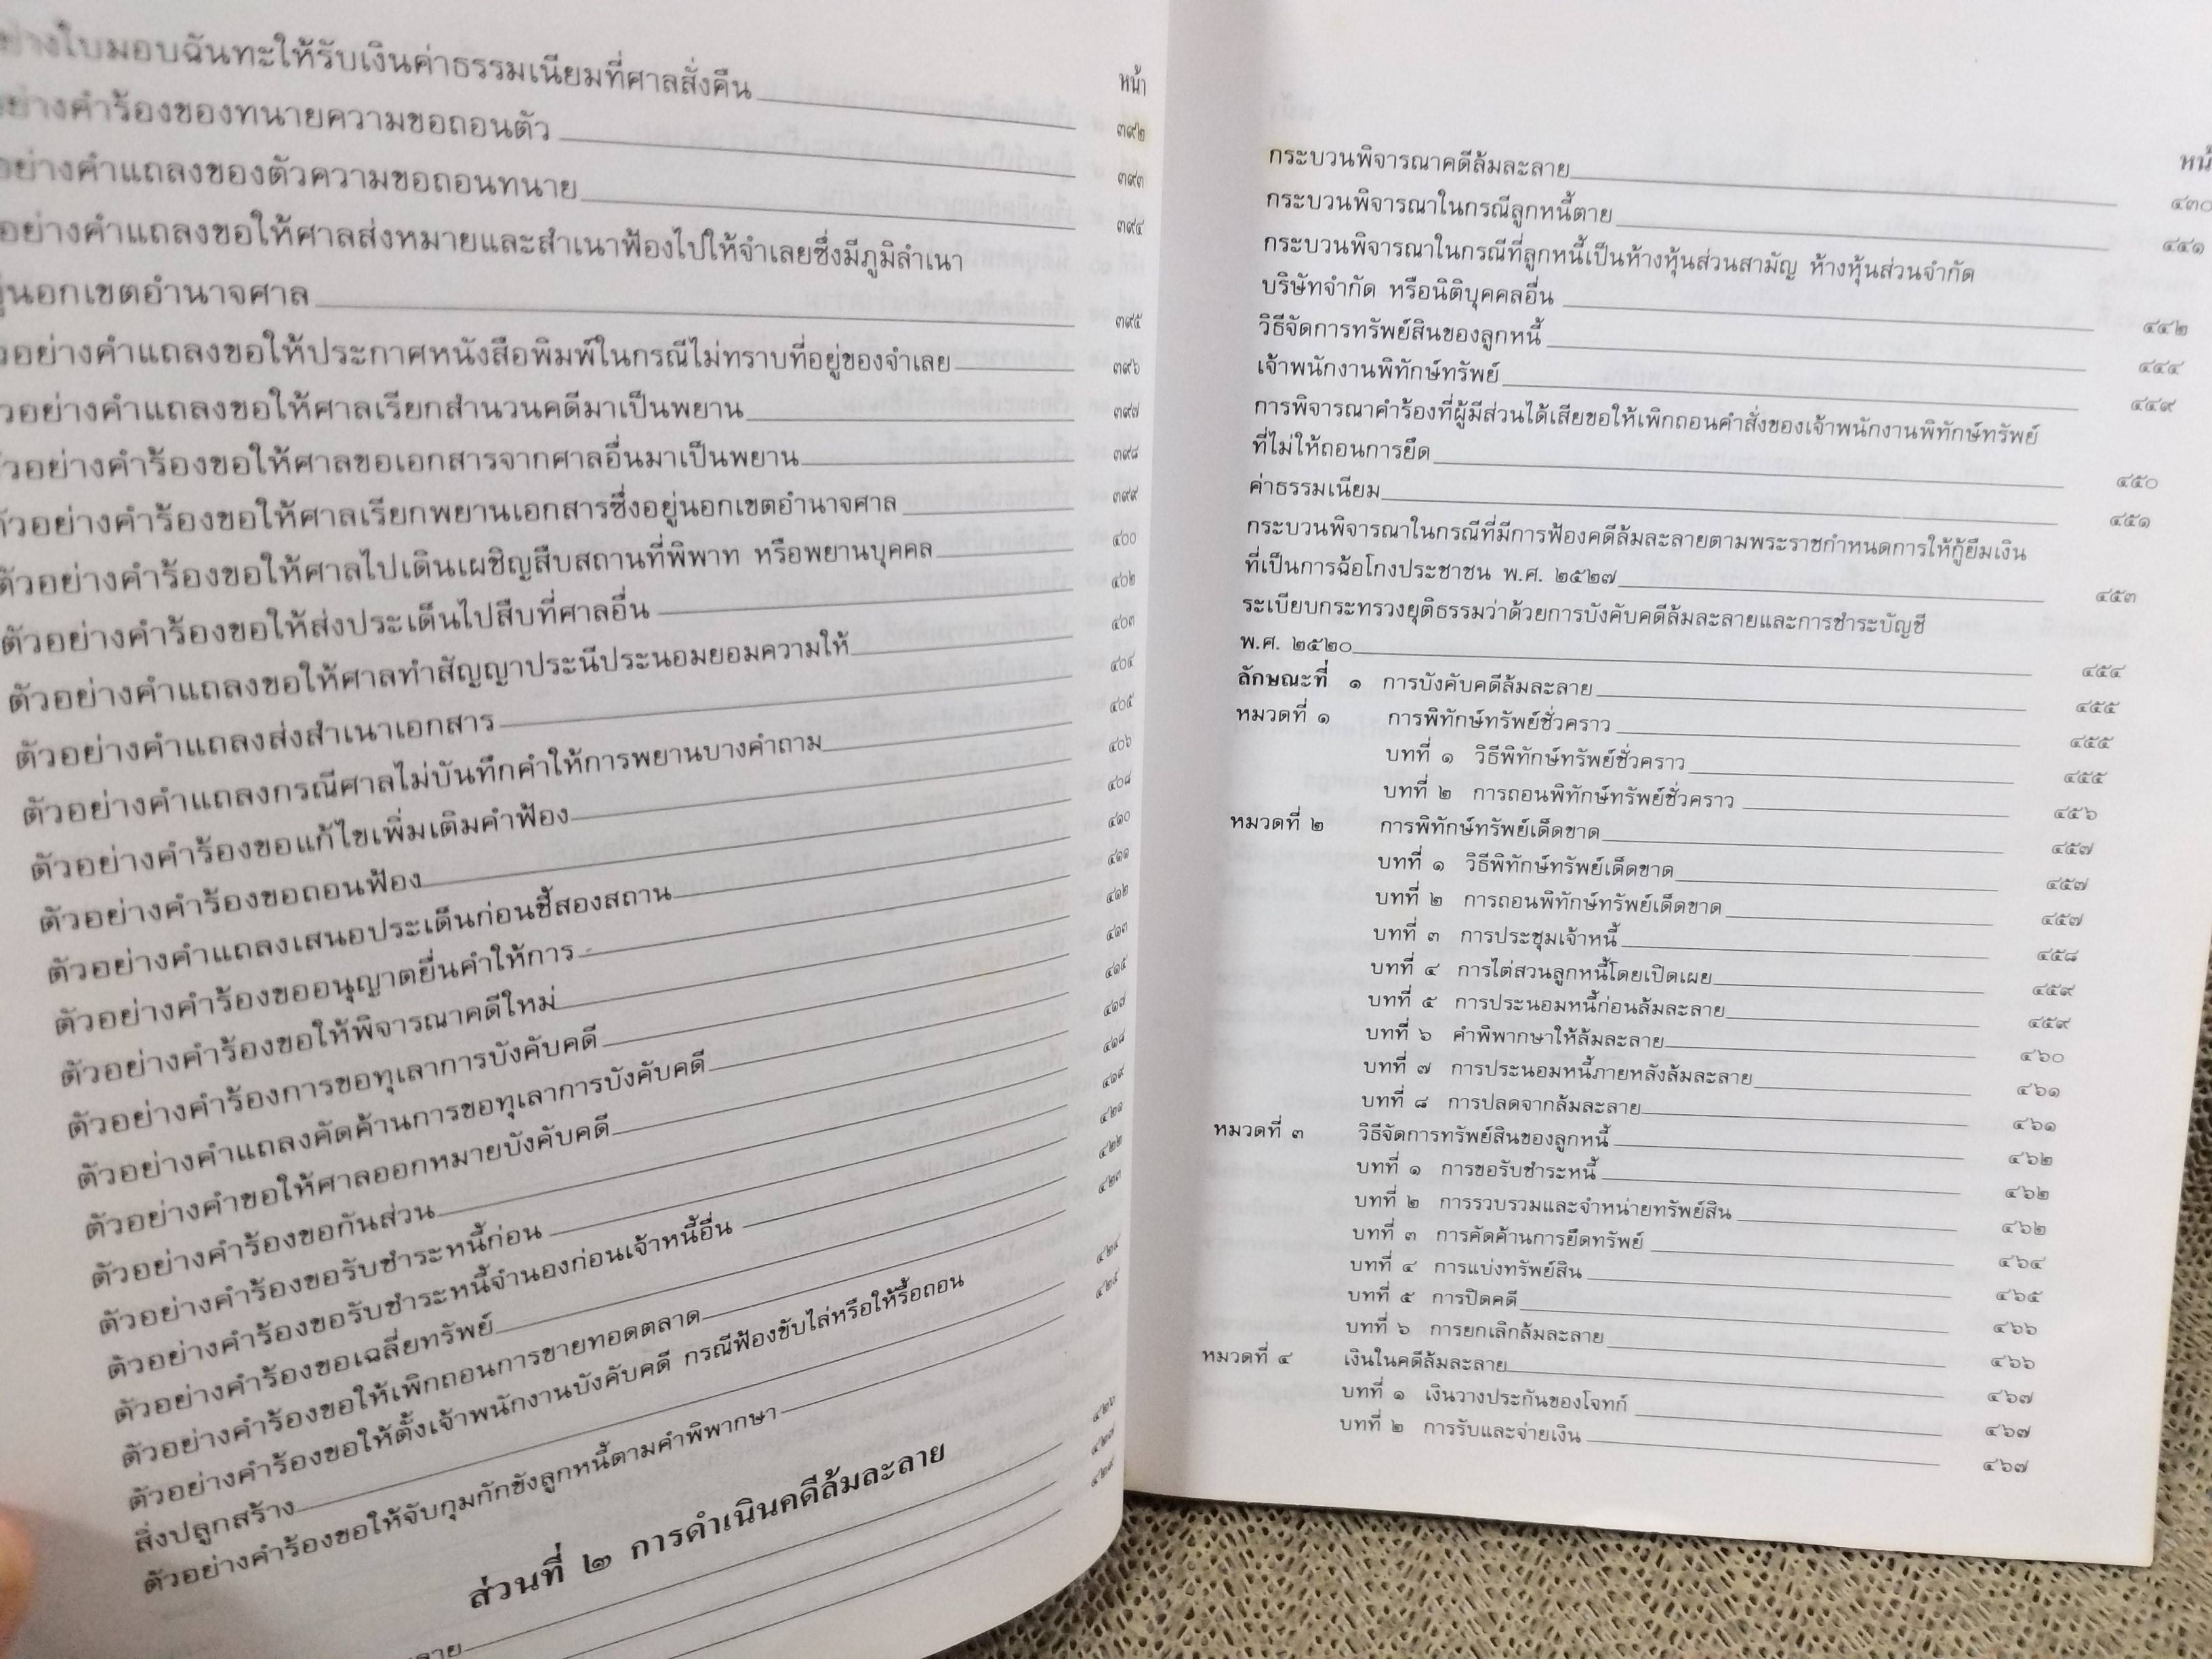 ย่างใบมอบฉันทะให้รับเงินค่าธรรมเนียมที่ศาลสั่งคืน
หน้า
๓๙๒
อย่างคำร้องของทนายความขอถอนตัว ๓๙๓
อย่างคำแถลงของตัวความขอถอนทนาย ๓๙๔
อย่างคำแถลงขอให้ศาลส่งหมายและสำเนาฟ้องไปให้จำเลยซึ่งมีภูมิลำเนา
นอกเขตอำนาจศาล ๓๙๕
อย่างคำแถลงขอให้ประกาศหนังสือพิมพ์ในกรณีไม่ทราบที่อยู่ของจำเลย ๓๙๖
วอย่างคำแถลงขอให้ศาลเรียกสำนวนคดีมาเป็นพยาน ๓๙๗
วอย่างคำร้องขอให้ศาลขอเอกสารจากศาลอื่นมาเป็นพยาน ๓๙๘
ตัวอย่างคำร้องขอให้ศาลเรียกพยานเอกสารซึ่งอยู่นอกเขตอำนาจศาล ๓๙๙
ตัวอย่างคำร้องขอให้ศาลไปเดินเผชิญสืบสถานที่พิพาท หรือพยานบุคคล ๔๐๐
ตัวอย่างคำร้องขอให้ส่งประเด็นไปสืบที่ศาลอื่น ๔๐๒
ตัวอย่างคำแถลงขอให้ศาลทำสัญญาประนีประนอมยอมความให้ ๔๐๓
ตัวอย่างคำแถลงส่งสำเนาเอกสาร ๔๐๔
ตัวอย่างคำแถลงกรณีศาลไม่บันทึกคำให้การพยานบางคำถาม ๔๐๕
ตัวอย่างคำร้องขอแก้ไขเพิ่มเติมคำฟ้อง ๔๐๖
ตัวอย่างคำร้องขอถอนฟ้อง ๔๐๘
ตัวอย่างคำแถลงเสนอประเด็นก่อนชี้สองสถาน ๔๑๐
ตัวอย่างคำร้องขออนุญาตยื่นคำให้การ ๔๑๑
ตัวอย่างคำร้องขอให้พิจารณาคดีใหม่ ๔๑๒
ตัวอย่างคำร้องการขอทุเลาการบังคับคดี ๔๑๓
ตัวอย่างคำแถลงคัดค้านการขอทุเลาการบังคับคดี ๔๑๕
ตัวอย่างคำขอให้ศาลออกหมายบังคับคดี ๔๑๗
ตัวอย่างคำร้องขอกันส่วน ๔๑๘
ตัวอย่างคำร้องขอรับชำระหนี้ก่อน ๔๑๙
ตัวอย่างคำร้องขอรับชำระหนี้จำนองก่อนเจ้าหนี้อื่น ๔๒๑
ตัวอย่างคำร้องขอเฉลี่ยทรัพย์ ๔๒๒
ตัวอย่างคำร้องขอให้เพิกถอนการขายทอดตลาด ๔๒๓
ตัวอย่างคำร้องขอให้ตั้งเจ้าพนักงานบังคับคดี กรณีฟ้องขับไล่หรือให้รื้อถอน
สิ่งปลูกสร้าง ๔๒๔
ตัวอย่างคำร้องขอให้จับกุมกักขังลูกหนี้ตามคำพิพากษา ๔๒๕
ส่วนที่ ๒ การดำเนินคดีล้มละลาย
ลาย ๔๒๖
๔๒๗
๔๒๙
หน้
กระบวนพิจารณาคดีล้มละลาย ๔๓๐
กระบวนพิจารณาในกรณีลูกหนี้ตาย ๔๔๑
กระบวนพิจารณาในกรณีที่ลูกหนี้เป็นห้างหุ้นส่วนสามัญ ห้างหุ้นส่วนจำกัด
บริษัทจำกัด หรือนิติบุคคลอื่น ๔๔๒
วิธีจัดการทรัพย์สินของลูกหนี้ ๔๔๔
เจ้าพนักงานพิทักษ์ทรัพย์ ๔๔๙
การพิจารณาคำร้องที่ผู้มีส่วนได้เสียขอให้เพิกถอนคำสั่งของเจ้าพนักงานพิทักษ์ทรัพย์
ที่ไม่ให้ถอนการยึด ๔๕๐
ค่าธรรมเนียม ๔๕๑
กระบวนพิจารณาในกรณีที่มีการฟ้องคดีล้มละลายตามพระราชกำหนดการให้กู้ยืมเงิน
ที่เป็นการฉ้อโกงประชาชน พ.ศ. ๒๕๒๗ ๔๕๓
ระเบียบกระทรวงยุติธรรมว่าด้วยการบังคับคดีล้มละลายและการชำระบัญชี
พ.ศ. ๒๕๒๐ ๔๕๔
ลักษณะที่ ๑ การบังคับคดีล้มละลาย ๔๕๕
หมวดที่ ๑ การพิทักษ์ทรัพย์ชั่วคราว ๔๕๕
บทที่ ๑ วิธีพิทักษ์ทรัพย์ชั่วคราว ๔๕๕
บทที่ ๒ การถอนพิทักษ์ทรัพย์ชั่วคราว ๔๕๖
หมวดที่ ๒ การพิทักษ์ทรัพย์เด็ดขาด ๔๕๗
บทที่ ๑ วิธีพิทักษ์ทรัพย์เด็ดขาด ๔๕๗
บทที่ ๒ การถอนพิทักษ์ทรัพย์เด็ดขาด ๔๕๗
บทที่ ๓ การประชุมเจ้าหนี้ ๔๕๘
บทที่ ๔ การไต่สวนลูกหนี้โดยเปิดเผย ๔๕๙
บทที่ ๕ การประนอมหนี้ก่อนล้มละลาย ๔๕๙
บทที่ ๖ คำพิพากษาให้ล้มละลาย ๔๖๐
บทที่ ๗ การประนอมหนี้ภายหลังล้มละลาย ๔๖๑
บทที่ ๘ การปลดจากล้มละลาย ๔๖๑
หมวดที่ ๓ วิธีจัดการทรัพย์สินของลูกหนี้ ๔๖๒
บทที่ ๑ การขอรับชำระหนี้ ๔๖๒
บทที่ ๒ การรวบรวมและจำหน่ายทรัพย์สิน ๔๖๒
บทที่ ๓ การคัดค้านการยึดทรัพย์ ๔๖๔
บทที่ ๔ การแบ่งทรัพย์สิน ๔๖๕
บทที่ ๕ การปิดคดี ๔๖๖
บทที่ ๖ การยกเลิกล้มละลาย ๔๖๖
หมวดที่ ๔ เงินในคดีล้มละลาย ๔๖๗
บทที่ ๑ เงินวางประกันของโจทก์ ๔๖๗
บทที่ ๒ การรับและจ่ายเงิน ๔๖๗